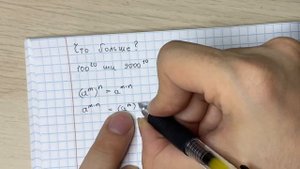 Что больше?
100²⁰ или 9000¹⁰
(aᵐ)ⁿ = aᵐ·ⁿ
aᵐ·ⁿ = (aᵐ)